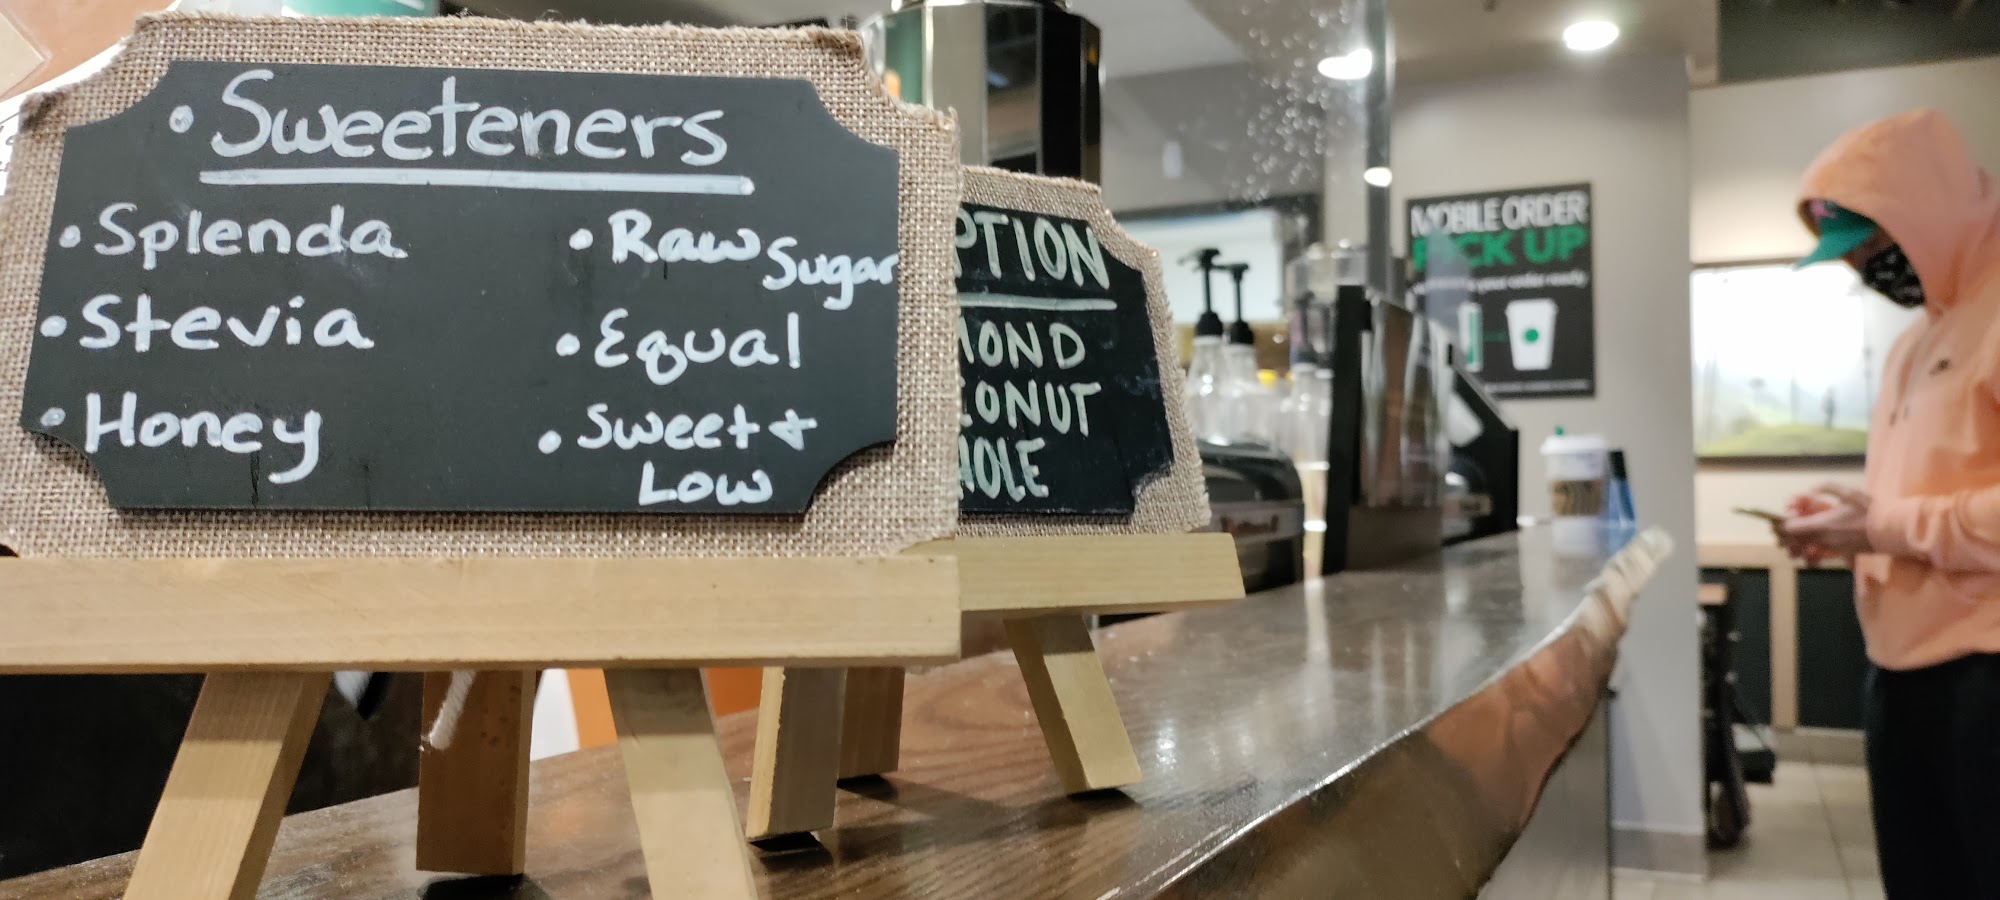 • Sweeteners
• Splenda
• Stevia
• Honey
• Raw Sugar
• Equal
• Sweet +
Low
PTION
MOND
CONUT
HOLE
MOBILE ORDER
PICK UP